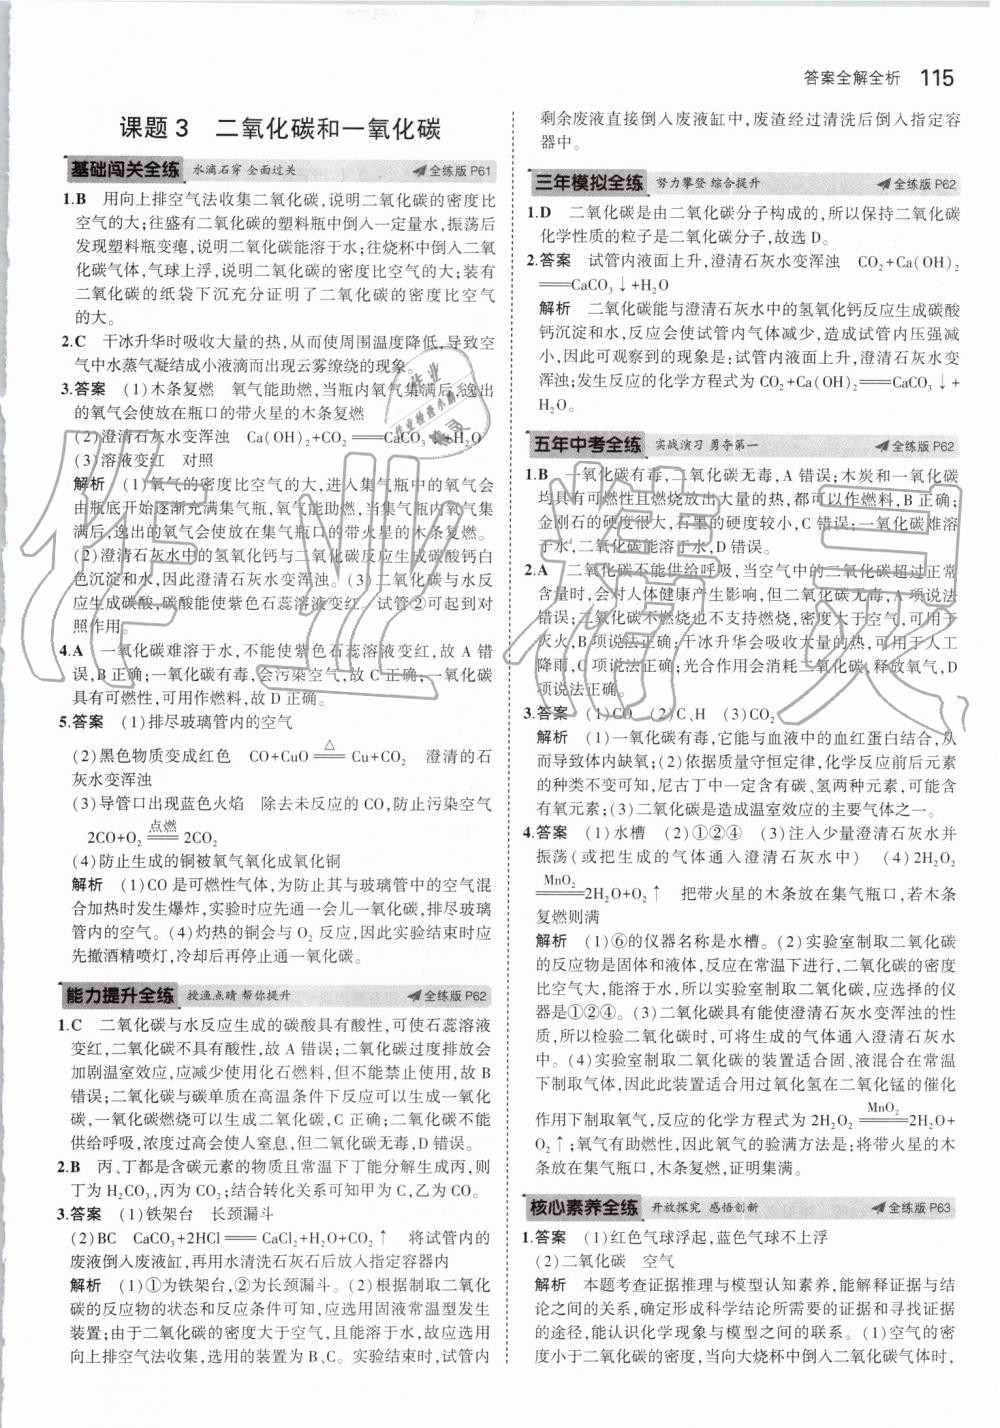 答案全解全析 115
课题3 二氧化碳和一氧化碳
基础闯关全练 水滴石穿 全面过关 全练版P61
1.B 用向上排空气法收集二氧化碳,说明二氧化碳的密度比
空气的大;往盛有二氧化碳的塑料瓶中倒入一定量水,振荡后
发现塑料瓶变瘪,说明二氧化碳能溶于水;往烧杯中倒入二氧
化碳气体,气球上浮,说明二氧化碳的密度比空气的大;装有
二氧化碳的纸袋下沉充分证明了二氧化碳的密度比空气
的大。
2.C 干冰升华时吸收大量的热,从而使周围温度降低,导致空
气中水蒸气凝结成小液滴而出现云雾缭绕的现象。
3.答案 (1)木条复燃 氧气能助燃,当瓶内氧气集满后,逸出
的氧气会使放在瓶口的带火星的木条复燃
(2)澄清石灰水变浑浊 Ca(OH)₂+CO₂══CaCO₃↓+H₂O
(3)溶液变红 对照
解析 (1)氧气的密度比空气的大,进入集气瓶中的氧气会
由瓶底开始逐渐充满集气瓶,氧气能助燃,当集气瓶内氧气集
满后,逸出的氧气会使放在集气瓶口的带火星的木条复燃。
(2)澄清石灰水中的氢氧化钙与二氧化碳反应生成碳酸钙白
色沉淀和水,因此澄清石灰水变浑浊。(3)二氧化碳与水反
应生成碳酸,碳酸能使紫色石蕊溶液变红。试管②可起到对
照作用。
4.A 一氧化碳难溶于水,不能使紫色石蕊溶液变红,故A错
误,B正确;一氧化碳有毒,会污染空气,故C正确;一氧化碳
具有可燃性,可用作燃料,故D正确。
5.答案 (1)排尽玻璃管内的空气
(2)黑色物质变成红色 CO+CuO═△═Cu+CO₂ 澄清的石
灰水变浑浊
(3)导管口出现蓝色火焰 除去未反应的CO,防止污染空气
2CO+O₂═点燃═2CO₂
(4)防止生成的铜被氧气氧化成氧化铜
解析 (1)CO是可燃性气体,为防止其与玻璃管中的空气混
合加热时发生爆炸,实验时应先通一会儿一氧化碳,排尽玻璃
管内的空气。(4)灼热的铜会与O₂反应,因此实验结束时应
先撤酒精喷灯,冷却后再停止通一氧化碳。
能力提升全练 授渔点睛 帮你提升 全练版P62
1.C 二氧化碳与水反应生成的碳酸具有酸性,可使石蕊溶液
变红,二氧化碳不具有酸性,故A错误;二氧化碳过度排放会
加剧温室效应,应减少使用化石燃料,但不能禁止使用,故B
错误;二氧化碳与碳单质在高温条件下反应可以生成一氧化
碳,一氧化碳燃烧可以生成二氧化碳,C正确;二氧化碳不能
供给呼吸,浓度过高会使人窒息,但二氧化碳无毒,D错误。
2.B 丙、丁都是含碳元素的物质且常温下丁能分解生成丙,则
丁为H₂CO₃,丙为CO₂;结合转化关系可知甲为C,乙为CO。
3.答案 (1)铁架台 长颈漏斗
(2)BC CaCO₃+2HCl══CaCl₂+H₂O+CO₂↑ 将试管内的
废液倒入废液缸,再用水清洗石灰石后放入指定容器内
解析 (1)①为铁架台,②为长颈漏斗。(2)根据制取二氧化
碳的反应物的状态和反应条件可知,应选用固液常温型发生
装置;由于二氧化碳的密度大于空气,且能溶于水,故应选用
向上排空气法收集,选用的装置为B、C。实验结束时,试管内
剩余废液直接倒入废液缸中,废渣经过清洗后倒入指定容
器中。
三年模拟全练 努力攀登 综合提升 全练版P62
1.D 二氧化碳是由二氧化碳分子构成的,所以保持二氧化碳
化学性质的粒子是二氧化碳分子,故选D。
2.答案 试管内液面上升,澄清石灰水变浑浊 CO₂+Ca(OH)₂
══CaCO₃↓+H₂O
解析 二氧化碳能与澄清石灰水中的氢氧化钙反应生成碳酸
钙沉淀和水,反应会使试管内气体减少,造成试管内压强减
小,因此可观察到的现象是:试管内液面上升,澄清石灰水变
浑浊;发生反应的化学方程式为CO₂+Ca(OH)₂══CaCO₃↓+
H₂O。
五年中考全练 实战演习 勇夺第一 全练版P62
1.B 一氧化碳有毒,二氧化碳无毒,A错误;木炭和一氧化碳
均具有可燃性且燃烧放出大量的热,都可以作燃料,B正确;
金刚石的硬度很大,石墨的硬度较小,C错误;一氧化碳难溶
于水,二氧化碳能溶于水,D错误。
2.A 二氧化碳不能供给呼吸,当空气中的二氧化碳超过正常
含量时,会对人体健康产生影响,但二氧化碳无毒,A项说法
错误;二氧化碳不燃烧也不支持燃烧,密度大于空气,可用于
灭火,B项说法正确;干冰升华会吸收大量的热,可用于人工
降雨,C项说法正确;光合作用会消耗二氧化碳,释放氧气,D
项说法正确。
3.答案 (1)CO (2)C、H (3)CO₂
解析 (1)一氧化碳有毒,它能与血液中的血红蛋白结合,从
而导致体内缺氧;(2)依据质量守恒定律,化学反应前后元素
的种类不变可知,尼古丁中一定含有碳、氢两种元素,可能含
有氧元素;(3)二氧化碳是造成温室效应的主要气体之一。
4.答案 (1)水槽 (2)①②④ (3)注入少量澄清石灰水并
振荡(或把生成的气体通入澄清石灰水中) (4)2H₂O₂
═MnO₂═2H₂O+O₂↑ 把带火星的木条放在集气瓶口,若木条
复燃则满
解析 (1)⑥的仪器名称是水槽。(2)实验室制取二氧化碳
的反应物是固体和液体,反应在常温下进行,二氧化碳的密度
比空气大,能溶于水,故制取二氧化碳时,应选择的仪
器是①②④。(3)二氧化碳具有能使澄清石灰水变浑浊的性
质,所以检验二氧化碳时,可将生成的气体通入澄清石灰水
中。(4)实验室制取二氧化碳的装置适合固、液混合在常温
下制取气体,因此此装置适合用过氧化氢在二氧化锰的催化
作用下制取氧气,反应的化学方程式为2H₂O₂═MnO₂═2H₂O+
O₂↑;氧气有助燃性,因此氧气的验满方法是:将带火星的木
条放在集气瓶口,木条复燃,证明集满。
核心素养全练 开放探究 感悟创新 全练版P63
1.答案 (1)红色气球浮起,蓝色气球不上浮
(2)二氧化碳 空气
解析 本题考查证据推理与模型认知素养,能解释证据与结
论之间的关系,确定形成科学结论所需要的证据和寻找证据
的途径,能认识化学现象与模型之间的联系。(1)空气的密
度小于二氧化碳的密度,当向大烧杯中倒入二氧化碳气体时,